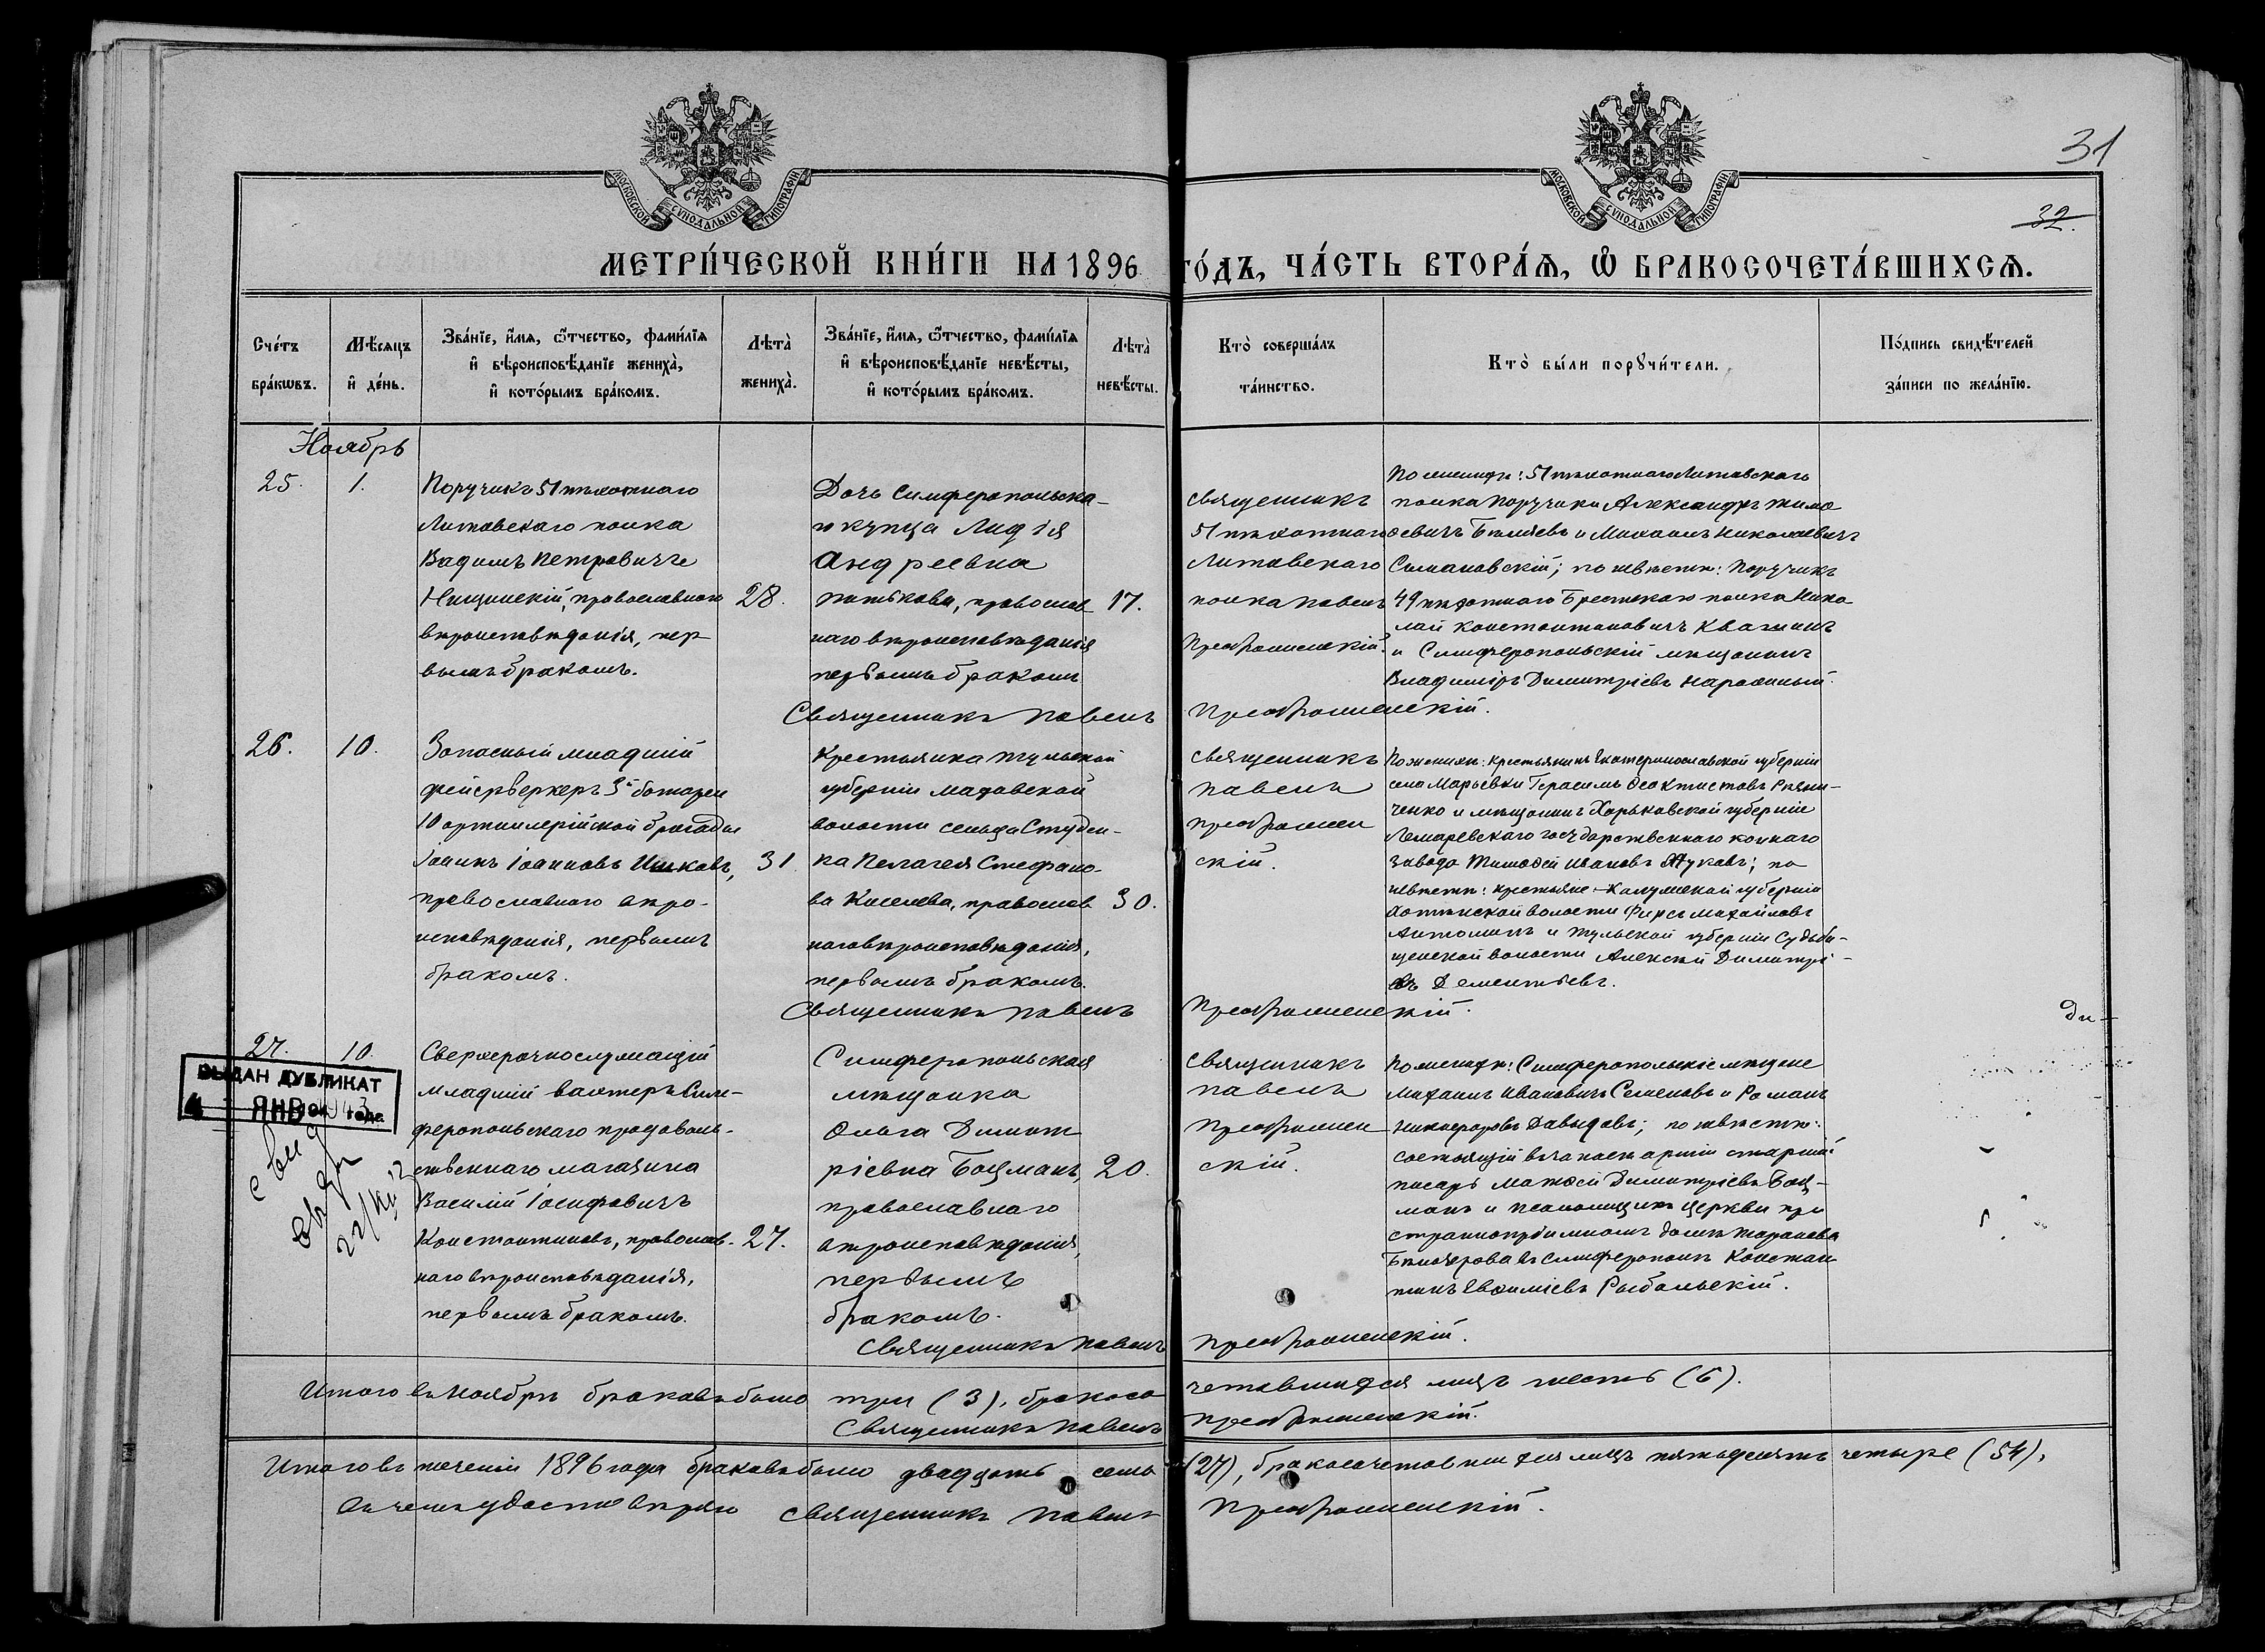 31
32.
МОСКОВСКОЙ СѴНОДАЛЬНОЙ ТИПОГРАФІИ
МОСКОВСКОЙ СѴНОДАЛЬНОЙ ТИПОГРАФІИ
МЕТРИ́ЧЕСКОЙ КНИ́ГИ НА 1896 ГО́ДЪ, ЧА́СТЬ ВТОРА́Ѧ, Ѡ҆ БРАКОСОЧЕТА́ВШИХСѦ.
Сче́тъ
бра́кѡвъ.
Мѣ́сѧцъ
и҆ де́нь.
Зва́нїе, и҆́мѧ, ѻ҆́тчество, фами́лїѧ
и҆ вѣроисповѣ́данїе жениха̀,
и҆ кото́рымъ бра́комъ.
Лѣта̀
жениха̀.
Зва́нїе, и҆́мѧ, ѻ҆́тчество, фами́лїѧ
и҆ вѣроисповѣ́данїе невѣ́сты,
и҆ кото́рымъ бра́комъ.
Лѣта̀
невѣ́сты.
Кто̀ соверша́лъ
та́инство.
Кто̀ бы́ли порꙋчи́тели.
По́дпись свидѣ́телей
за́писи по жела́нїю.
Ноябрь
25.
1.
Поручикъ 51 пѣхотнаго
Литовскаго полка
Вадимъ Петровичъ
Нищинскій, православнаго
вѣроисповѣданія, пер
вымъ бракомъ.
28.
Дочь Симферопольска-
го купца Лидія
Андреевна
православ
наго вѣроисповѣданія
первымъ бракомъ
17.
Священникъ
51 пѣхотнаго
Литовскаго
полка Павелъ
Преображенскій.
По женихѣ: 51 пѣхотнаго Литовскаго
полка Поручики Александръ Тимо
ѳевичъ Бѣляевъ и Михаилъ Николаевичъ
Симановскій; по невѣстѣ: Поручикъ
49 пѣхотнаго Брестскаго полка Нико
лай Константиновичъ
и Симферопольскій мѣщанинъ
Владиміръ Димитріевъ
Священникъ Павелъ Преображенскій.
26.
10.
Запасный младшій
фейерверкеръ 3й батареи
10 артиллерійской бригады
Іоаннъ Іоанновъ
православнаго вѣро-
исповѣданія, первымъ
бракомъ.
31.
Крестьянка Тульской
губерніи
волости сельца Студен-
ка Пелагея Стефано-
ва Киселева, православ
наго вѣроисповѣданія,
первымъ бракомъ.
30.
Священникъ
Павелъ
Преображен
скій.
По женихѣ: крестьянинъ Екатеринославской губерніи
села Марьевки Герасимъ Ѳеоктистовъ
ченко и мѣщанинъ Харьковской губерніи
государственнаго коннаго
завода Тимоѳей Ивановъ Жуковъ; по
невѣстѣ: крестьяне Калужской губерніи
волости Фирсъ Михайловъ
Антошинъ и Тульской губерніи Судьби-
щенской волости Алексѣй Димитрі-
евъ Дементьевъ.
Священникъ Павелъ Преображенскій.
27.
10.
Сверхсрочнослужащій
младшій вахтеръ Сим-
феропольскаго продоволь-
ственнаго магазина
Василій Іосифовичъ
Константиновъ, православ-
наго вѣроисповѣданія,
первымъ бракомъ.
27.
Симферопольская
мѣщанка
Ольга Димит
ріевна Боцманъ,
православнаго
вѣроисповѣданія,
первымъ
бракомъ.
20.
Священникъ
Павелъ
Преображен
скій.
По женихѣ: Симферопольскіе мѣщане
Михаилъ Ивановичъ Семеновъ и Романъ
Никифоровъ Давыдовъ; по невѣстѣ:
состоящій въ запасѣ арміи старшій
писарь Матѳей Димитріевъ Боц-
манъ и псаломщикъ церкви при
страннопріимномъ домѣ Таранова
Бѣлозерова въ Симферополѣ Констан
тинъ Евѳиміевъ Рыбальскій.
Священникъ Павелъ Преображенскій.
ВЫДАН ДУБЛИКАТ
ЯНВ 1943 года
Итого въ Ноябрѣ браковъ было три (3), бракосо четавшихся лицъ шесть (6).
Священникъ Павелъ Преображенскій.
Итого въ теченіи 1896 года браковъ было двадцать семь (27), бракосочетавшихся лицъ пятьдесятъ четыре (54),
въ чемъ удостовѣряю Священникъ Павелъ Преображенскій.